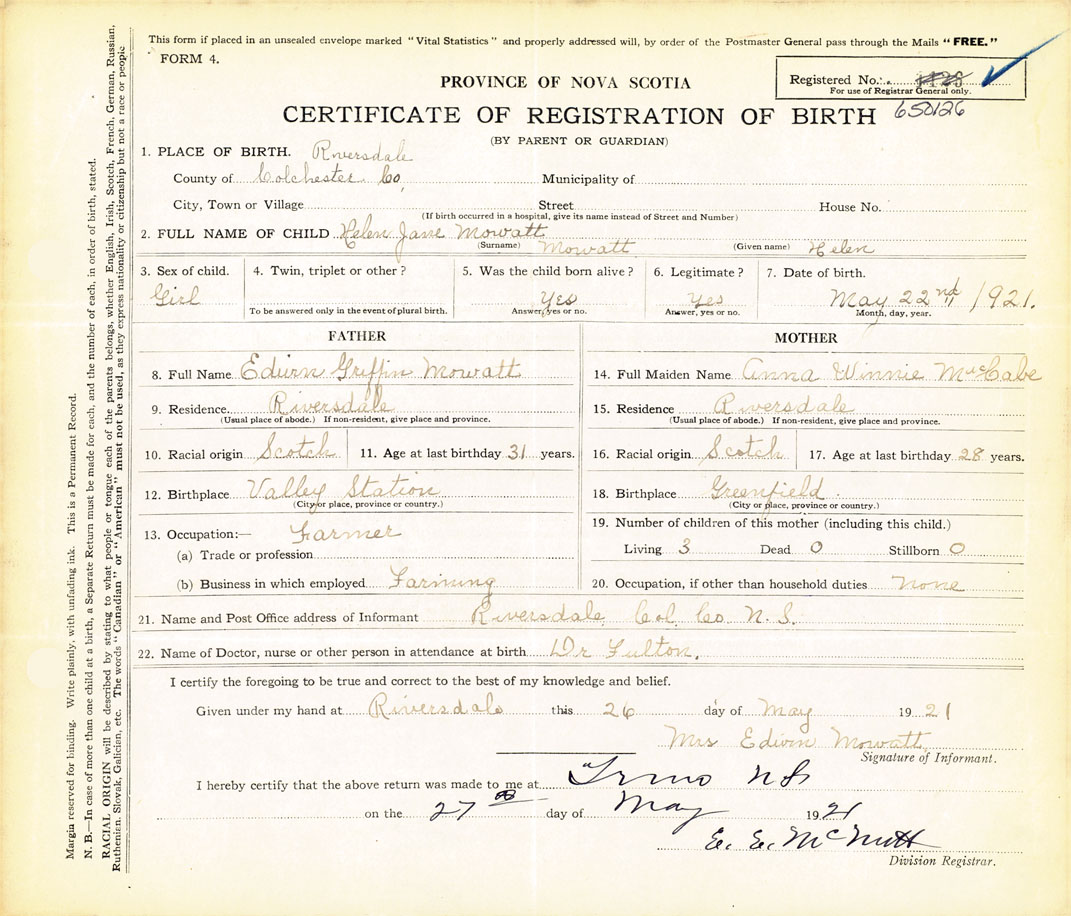 This form if placed in an unsealed envelope marked "Vital Statistics" and properly addressed will, by order of the Postmaster General pass through the Mails "FREE."
FORM 4.
PROVINCE OF NOVA SCOTIA
Registered No.
For use of Registrar General only.
CERTIFICATE OF REGISTRATION OF BIRTH 650126
(BY PARENT OR GUARDIAN)
1. PLACE OF BIRTH. Riversdale
County of Colchester Co, Municipality of
City, Town or Village Street House No.
(If birth occurred in a hospital, give its name instead of Street and Number)
2. FULL NAME OF CHILD Helen Jane Mowatt
(Surname) Mowatt (Given name) Helen
3. Sex of child. 4. Twin, triplet or other? 5. Was the child born alive? 6. Legitimate? 7. Date of birth.
Girl Yes Yes May 22nd 1921.
To be answered only in the event of plural birth. Answer, yes or no. Answer, yes or no. Month, day, year.
FATHER
8. Full Name Edwin Griffin Mowatt
9. Residence. Riversdale
(Usual place of abode.) If non-resident, give place and province.
10. Racial origin Scotch 11. Age at last birthday 31 years.
12. Birthplace Valley Station
(City or place, province or country.)
13. Occupation:— Farmer
(a) Trade or profession
(b) Business in which employed Farming
MOTHER
14. Full Maiden Name Anna Winnie McCabe
15. Residence Riversdale
(Usual place of abode.) If non-resident, give place and province.
16. Racial origin Scotch 17. Age at last birthday 28 years.
18. Birthplace Greenfield
(City or place, province or country.)
19. Number of children of this mother (including this child.)
Living 3 Dead 0 Stillborn 0
20. Occupation, if other than household duties none
21. Name and Post Office address of Informant Riversdale Col. Co. N.S.
22. Name of Doctor, nurse or other person in attendance at birth Dr Fulton.
I certify the foregoing to be true and correct to the best of my knowledge and belief.
Given under my hand at Riversdale this 26 day of May 1921
Mrs Edwin Mowatt
Signature of Informant.
I hereby certify that the above return was made to me at Truro NS
on the 27 day of May 1921
E. E. McNutt
Division Registrar.
Margin reserved for binding. Write plainly, with unfading ink. This is a Permanent Record.
N. B.—In case of more than one child at a birth, a Separate Return must be made for each, and the number of each, in order of birth, stated.
RACIAL ORIGIN will be described by stating to what people or tongue each of the parents belongs, whether English, Irish, Scotch, French, German, Russian,
Ruthenian, Slovak, Galician, etc. The words "Canadian" or "American" must not be used, as they express nationality or citizenship but not a race or people